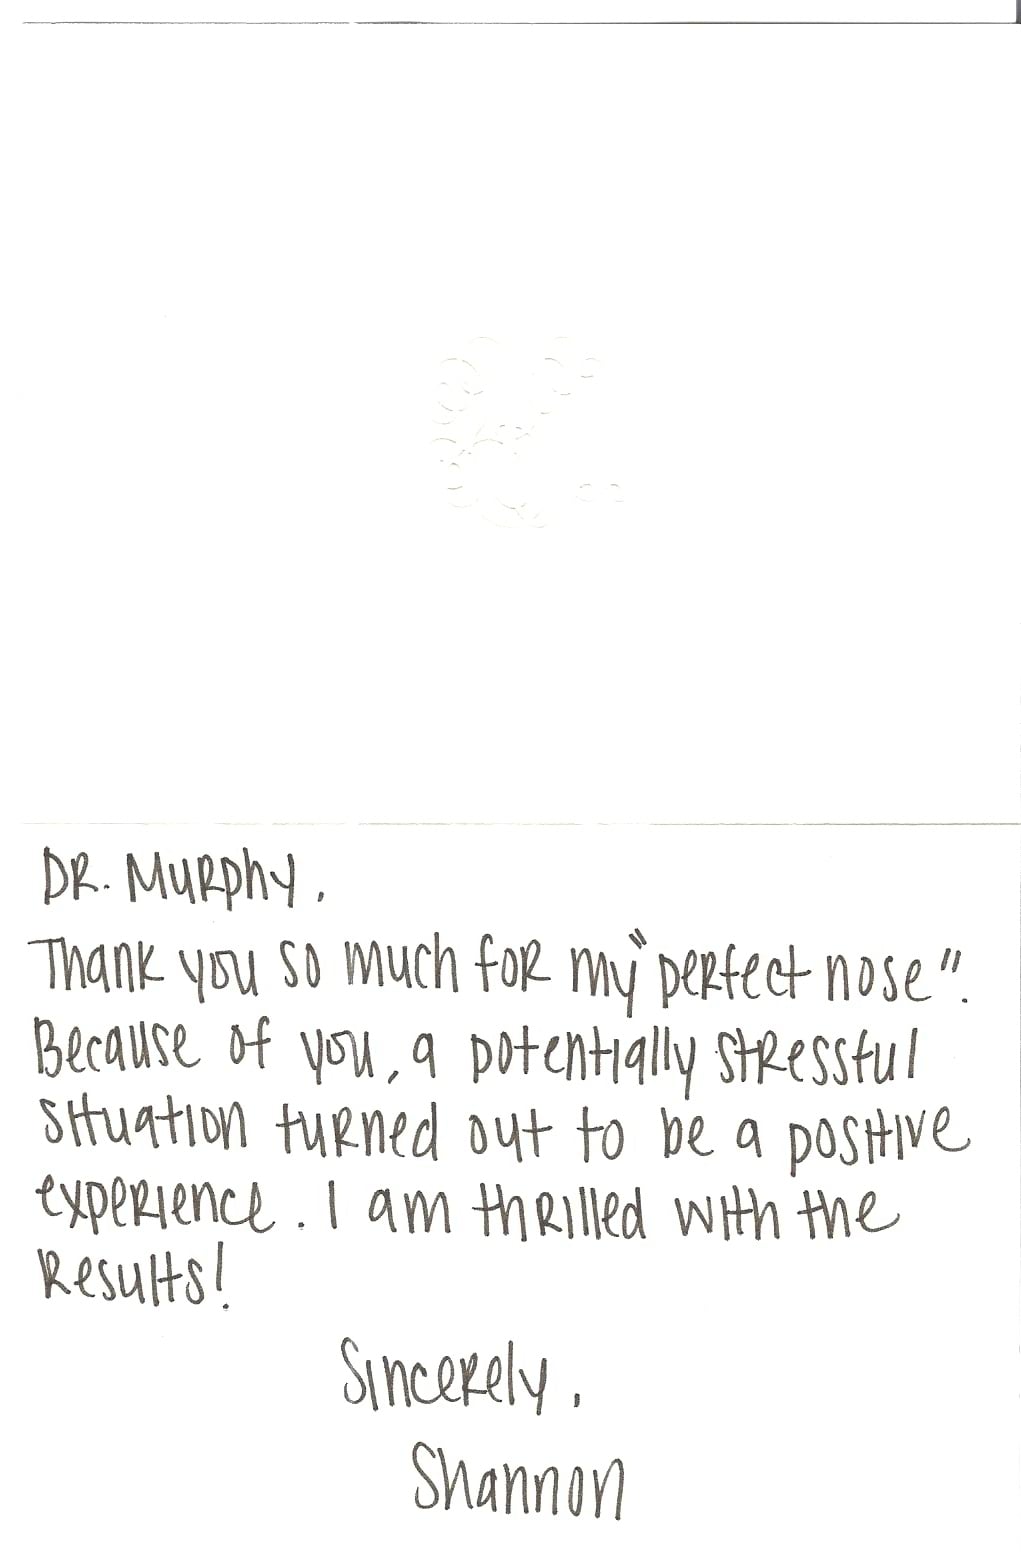 DR. Murphy,
Thank you so much for my "perfect nose".
Because of you, a potentially stressful
situation turned out to be a positive
experience. I am thrilled with the
Results!
Sincerely,
Shannon